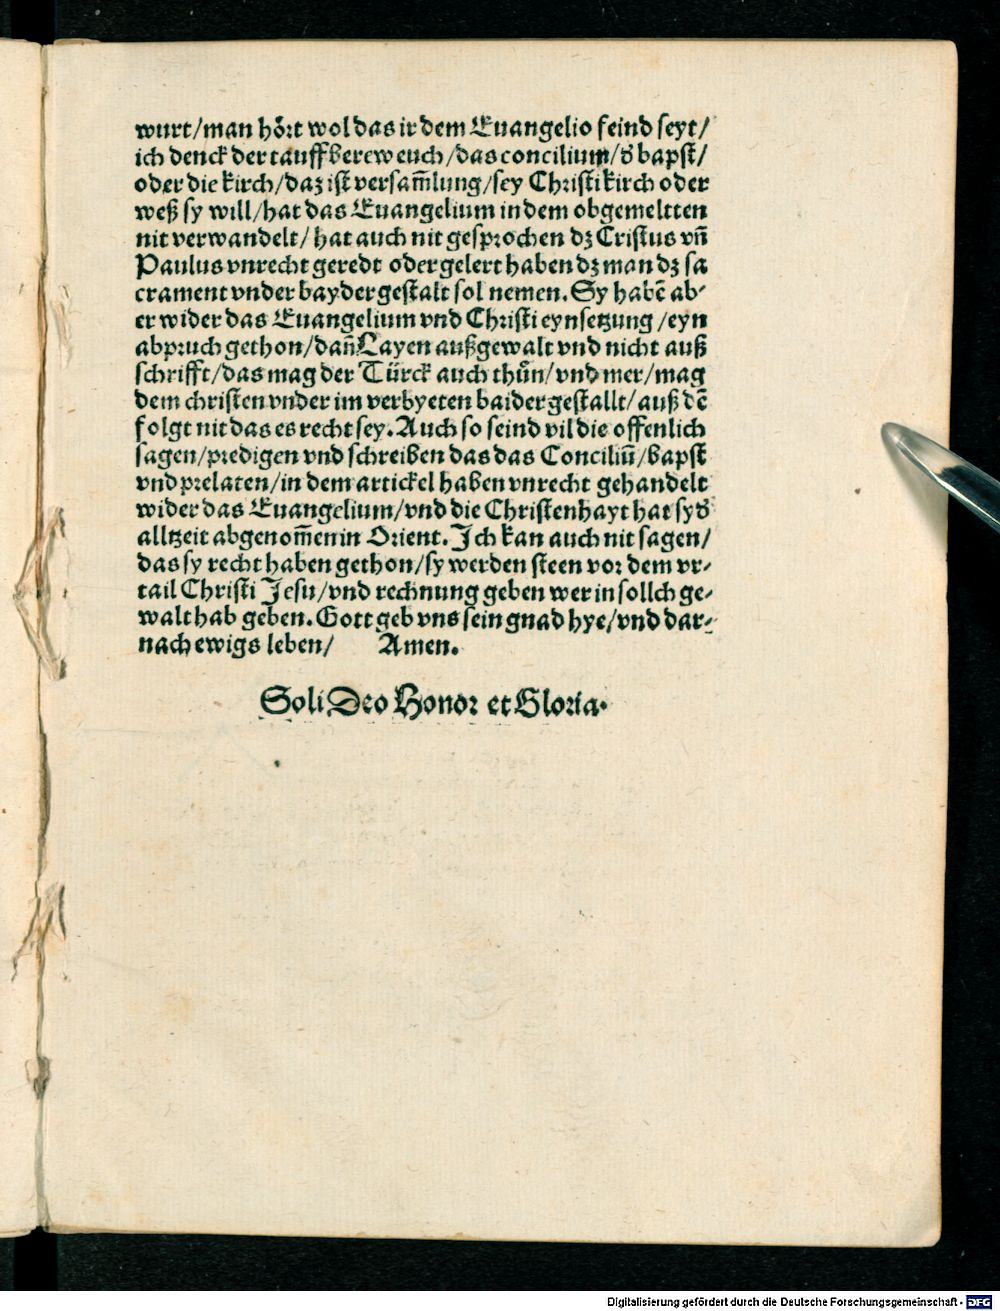 wurt/man hoͤrt wol das ir dem Euangelio feind seyt/
ich denck der tauff berew euch/das concilium/dˢ bapst/
oder die kirch/daz ist versam̃lung/sey Christi kirch oder
weß sy will/hat das Euangelium in dem obgemeltten
nit verwandelt/ hat auch nit gesprochen dz Cristus vñ
Paulus vnrecht geredt oder gelert haben dz man dz sa
crament vnder bayder gestalt sol nemen. Sy habẽ ab⸗
er wider das Euangelium vnd Christi eynsetzung /eyn
abpruch gethon/dañ Layen außgewalt vnd nicht auß
schrifft/das mag der Türck auch thuͦn/vnd mer/mag
dem christen vnder im verbyeten baider gestallt/auß dẽ
folgt nit das es recht sey. Auch so seind vil die offenlich
sagen/predigen vnd schreiben das das Conciliũ/bapst
vnd prelaten/in dem artickel haben vnrecht gehandelt
wider das Euangelium/vnd die Christenhayt hat sydˢ
alltzeit abgenom̃en in Orient. Ich kan auch nit sagen/
das sy recht haben gethon/sy werden steen vor dem vr⸗
tail Christi Jesu/vnd rechnung geben wer in sollch ge⸗
walt hab geben. Gott geb vns sein gnad hye/vnd dar⸗
nach ewigs leben/ Amen.
Soli Deo Honor et Gloria.
Digitalisierung gefördert durch die Deutsche Forschungsgemeinschaft - DFG